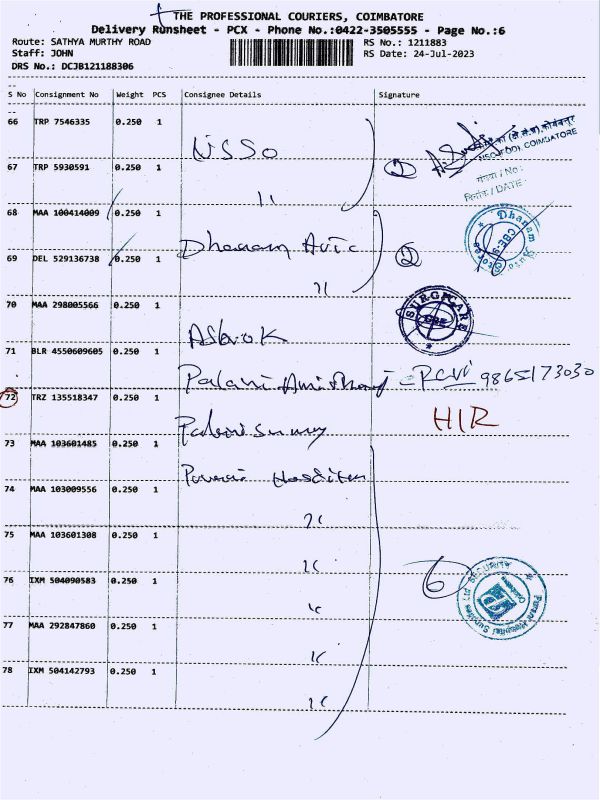 THE PROFESSIONAL COURIERS, COIMBATORE
Delivery Runsheet - PCX - Phone No.:0422-3505555 - Page No.:6
Route: SATHYA MURTHY ROAD RS No.: 1211883
Staff: JOHN RS Date: 24-Jul-2023
DRS No.: DCJB121188306
S No Consignment No Weight PCS Consignee Details Signature
66 TRP 7546335 0.250 1 NSSO
67 TRP 5930591 0.250 1 11 2
NSO(FOD), COIMBATORE
संख्या / No:
दिनांक / DATE:
68 MAA 100414009 0.250 1 Dhanam Avic
69 DEL 529136738 0.250 1 11 2
Dhanam
CBE-9
70 MAA 298005566 0.250 1 Ashok
SURGICARE
CBE
71 BLR 4550609605 0.250 1 Palani 9865173030
72 TRZ 135518347 0.250 1 H/R
73 MAA 103601485 0.250 1
74 MAA 103009556 0.250 1 11
75 MAA 103601308 0.250 1 11
76 IXM 504090583 0.250 1 11 6
77 MAA 292847860 0.250 1 11
78 IXM 504142793 0.250 1 11